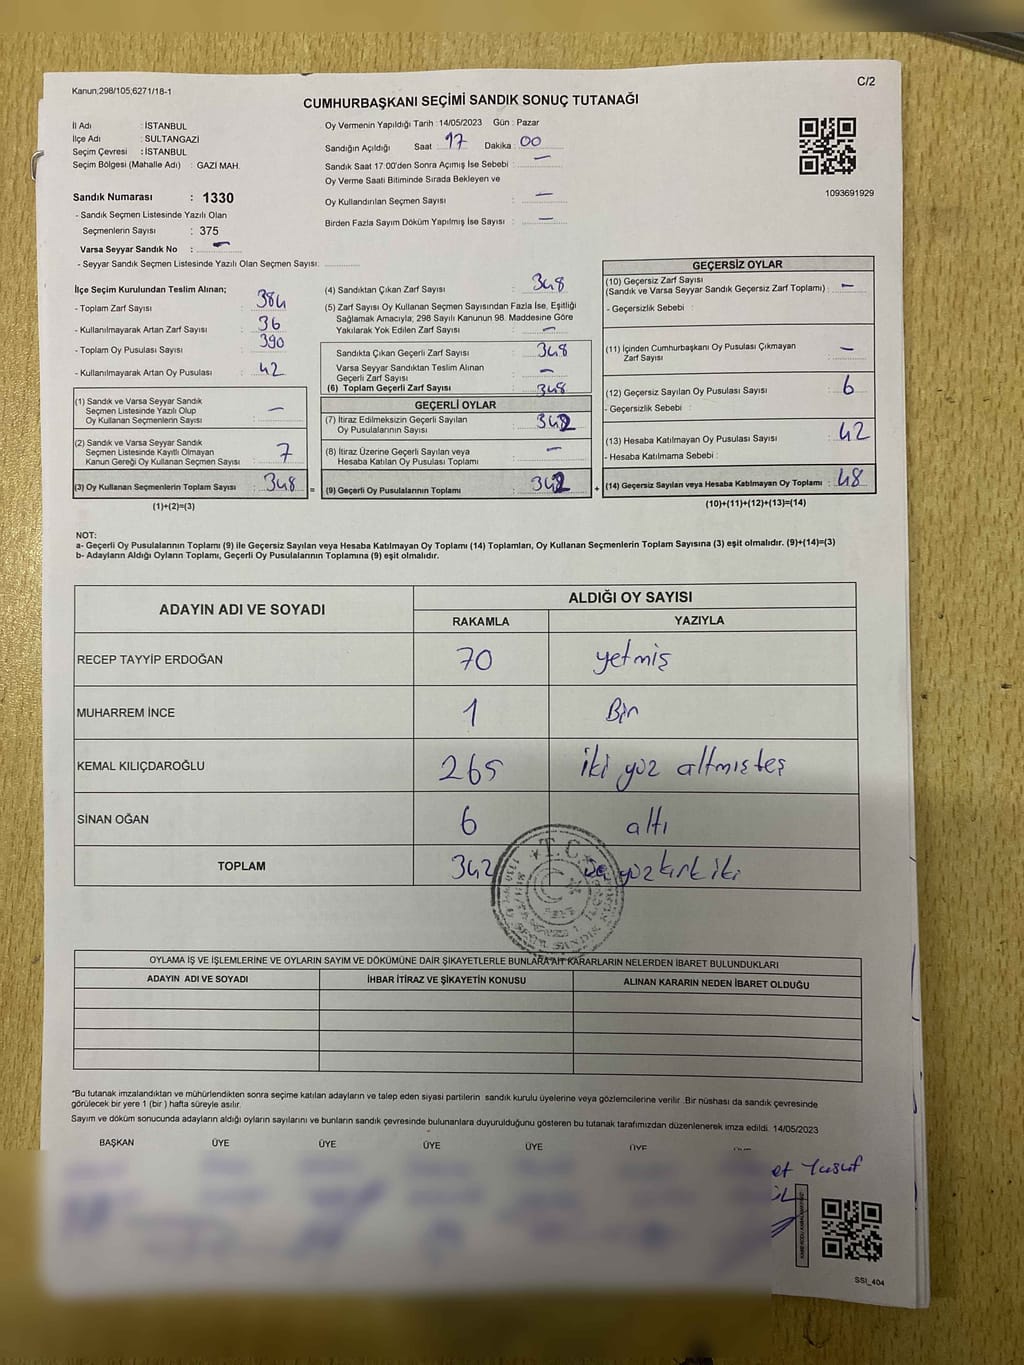 Kanun;298/105,6271/18-1
C/2
CUMHURBAŞKANI SEÇİMİ SANDIK SONUÇ TUTANAĞI
İl Adı : İSTANBUL
İlçe Adı : SULTANGAZİ
Seçim Çevresi : İSTANBUL
Seçim Bölgesi (Mahalle Adı) : GAZİ MAH.
Sandık Numarası : 1330
- Sandık Seçmen Listesinde Yazılı Olan
Seçmenlerin Sayısı : 375
Varsa Seyyar Sandık No : —
- Seyyar Sandık Seçmen Listesinde Yazılı Olan Seçmen Sayısı:
Oy Vermenin Yapıldığı Tarih : 14/05/2023 Gün : Pazar
Sandığın Açıldığı Saat : 17 Dakika : 00
Sandık Saat 17:00'den Sonra Açımış İse Sebebi : —
Oy Verme Saati Bitiminde Sırada Bekleyen ve
Oy Kullandırılan Seçmen Sayısı : —
Birden Fazla Sayım Döküm Yapılmış İse Sayısı : —
1093691929
İlçe Seçim Kurulundan Teslim Alınan;
- Toplam Zarf Sayısı : 384
- Kullanılmayarak Artan Zarf Sayısı : 36
- Toplam Oy Pusulası Sayısı : 390
- Kullanılmayarak Artan Oy Pusulası : 42
(1) Sandık ve Varsa Seyyar Sandık
Seçmen Listesinde Yazılı Olup
Oy Kullanan Seçmenlerin Sayısı : —
(2) Sandık ve Varsa Seyyar Sandık
Seçmen Listesinde Kayıtlı Olmayan
Kanun Gereği Oy Kullanan Seçmen Sayısı : 7
(3) Oy Kullanan Seçmenlerin Toplam Sayısı : 348 =
(1)+(2)=(3)
(4) Sandıktan Çıkan Zarf Sayısı : 348
(5) Zarf Sayısı Oy Kullanan Seçmen Sayısından Fazla İse, Eşitliği
Sağlamak Amacıyla; 298 Sayılı Kanunun 98. Maddesine Göre
Yakılarak Yok Edilen Zarf Sayısı : —
Sandıkta Çıkan Geçerli Zarf Sayısı : 348
Varsa Seyyar Sandıktan Teslim Alınan
Geçerli Zarf Sayısı : —
(6) Toplam Geçerli Zarf Sayısı : 348
GEÇERLİ OYLAR
(7) İtiraz Edilmeksizin Geçerli Sayılan
Oy Pusulalarının Sayısı : 342
(8) İtiraz Üzerine Geçerli Sayılan veya
Hesaba Katılan Oy Pusulası Toplamı : —
(9) Geçerli Oy Pusulalarının Toplamı : 342 +
GEÇERSİZ OYLAR
(10) Geçersiz Zarf Sayısı
(Sandık ve Varsa Seyyar Sandık Geçersiz Zarf Toplamı) : —
- Geçersizlik Sebebi :
(11) İçinden Cumhurbaşkanı Oy Pusulası Çıkmayan
Zarf Sayısı : —
(12) Geçersiz Sayılan Oy Pusulası Sayısı : 6
- Geçersizlik Sebebi :
(13) Hesaba Katılmayan Oy Pusulası Sayısı : 42
- Hesaba Katılmama Sebebi :
(14) Geçersiz Sayılan veya Hesaba Katılmayan Oy Toplamı : 48
(10)+(11)+(12)+(13)=(14)
NOT:
a- Geçerli Oy Pusulalarının Toplamı (9) ile Geçersiz Sayılan veya Hesaba Katılmayan Oy Toplamı (14) Toplamları, Oy Kullanan Seçmenlerin Toplam Sayısına (3) eşit olmalıdır. (9)+(14)=(3)
b- Adayların Aldığı Oyların Toplamı, Geçerli Oy Pusulalarının Toplamına (9) eşit olmalıdır.
ADAYIN ADI VE SOYADI ALDIĞI OY SAYISI
RAKAMLA YAZIYLA
RECEP TAYYİP ERDOĞAN 70 yetmiş
MUHARREM İNCE 1 Bir
KEMAL KILIÇDAROĞLU 265 iki yüz altmışteş
SİNAN OĞAN 6 altı
TOPLAM 342 üç yüz kırk iki
T.C.
OYLAMA İŞ VE İŞLEMLERİNE VE OYLARIN SAYIM VE DÖKÜMÜNE DAİR ŞİKAYETLERLE BUNLARA AİT KARARLARIN NELERDEN İBARET BULUNDUKLARI
ADAYIN ADI VE SOYADI İHBAR İTİRAZ VE ŞİKAYETİN KONUSU ALINAN KARARIN NEDEN İBARET OLDUĞU
*Bu tutanak imzalandıktan ve mühürlendikten sonra seçime katılan adayların ve talep eden siyasi partilerin sandık kurulu üyelerine veya gözlemcilerine verilir .Bir nüshası da sandık çevresinde
görülecek bir yere 1 (bir ) hafta süreyle asılır.
Sayım ve döküm sonucunda adayların aldığı oyların sayılarını ve bunların sandık çevresinde bulunanlara duyurulduğunu gösteren bu tutanak tarafımızdan düzenlenerek imza edildi. 14/05/2023
BAŞKAN ÜYE ÜYE ÜYE ÜYE ÜYE
et Yusuf
SSI_404